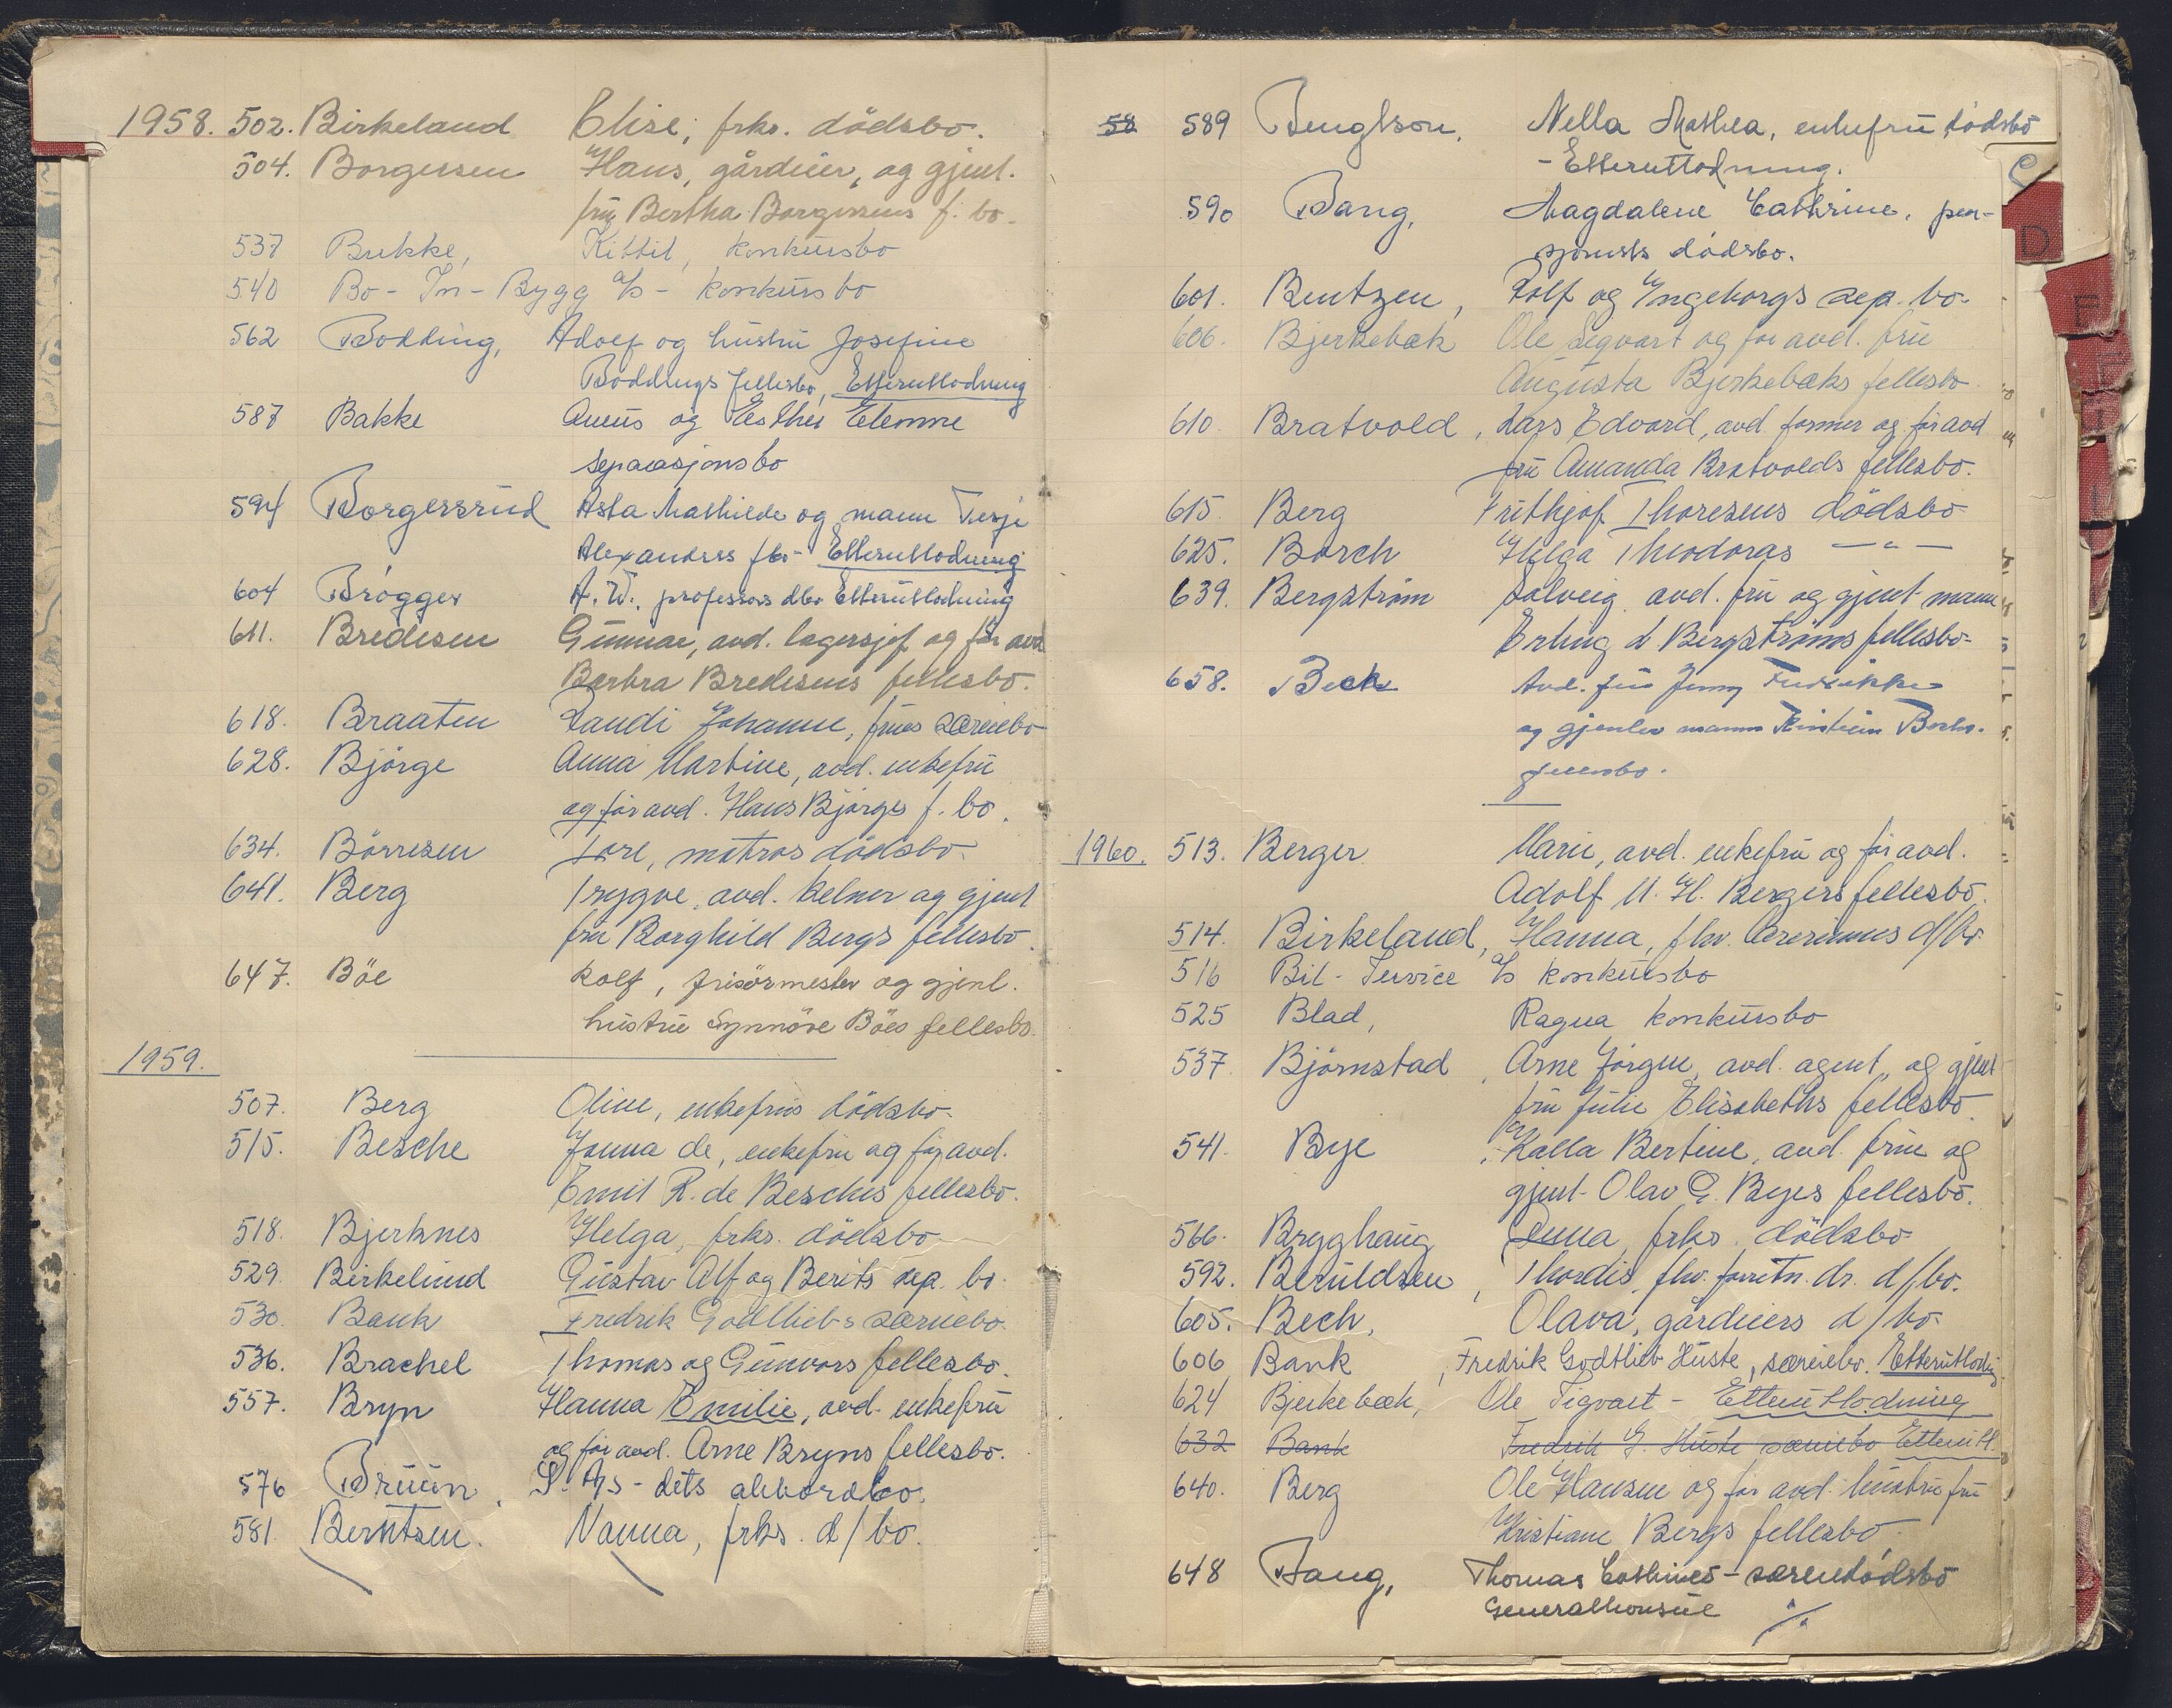 1958. 502. Birkeland Elise, frks. dödsbo.
504. Borgersen Hans, gårdeier, og gjenl.
fru Bertha Borgersens f. bo.
537 Bukke, Kittil, konkursbo
540 Bo-In-Bygg A/S - konkursbo
562 Bodding, Adolf og hustru Josefine
Boddings fellesbo, Etterutlodning
587 Bakke og Esther
separasjonsbo
594 Borgersrud Asta Mathilde og mann Terje
Alexanders fbo - Etterutlodning
604 Brøgger A.W., professors dbo Etterutlodning
611. Bredesen Gunnar, avd. lagersjef og før avd
Barbra Bredesens fellesbo.
618. Braaten Randi Johanne, frues særeiebo
628. Bjørge Anna Martine, avd. enkefru
og før avd. Hans Bjørges f. bo.
634. Börresen Tore, matros dödsbo
641. Berg Trygve, avd. kelner og gjenl
fru Borghild Bergs fellesbo.
647. Böe Rolf, frisörmester og gjenl.
hustru Synnöve Böes fellesbo.
1959.
507. Berg Oline, enkefrus dödsbo.
515. Besche Jonna de, enkefru og før avd.
Emil R. de Besches fellesbo.
518. Bjerknes Helga, frks. dödsbo
529. Birkelund Gustav Alf og Berits sep. bo.
530. Bank Fredrik Godtliebs særeiebo.
536. Brachel Thomas og Gunvors fellesbo.
557. Bryn Hanna Emilie, avd. enkefru
og før avd. Arne Bryns fellesbo.
576 Bruun, S. A/S - dets akkordbo.
581. Berntsen. Nanna, frks. d/bo.
58 589 Bengtson, Nella Mathea, enkefru dödsbo
- Etterutlodning.
590 Bang, Magdalene Cathrine, pen-
sjonists dödsbo.
601. Bentzen, Rolf og Ingeborgs sep. bo.
606. Bjerkebæk Ole Sigvart og før avd. fru
Augusta Bjerkebæks fellesbo.
610. Bratvold, Lars Edvard, avd. farmer og før avd
fru Amanda Bratvolds fellesbo.
615. Berg Frithjof Thoresens dödsbo
625. Borch Helga Theodoras — " —
639. Bergström Solveig avd. fru og gjenl mann
Erling L Bergströms fellesbo.
658. Beck Avd. fru Jenny Fredrikke
og gjenlev mann Beck.
fellesbo.
1960. 513. Berger Marie, avd. enkefru og før avd.
Adolf M. H. Bergers fellesbo.
514. Birkeland, Hanna, fhv. d/bo
516 Bil-Service A/S konkursbo
525 Blad, Ragna konkursbo
537 Björnstad, Arne Jörgen, avd. agent, og gjenl
fru Julie Elisabeths fellesbo.
541. Bye, Kalla Bertine, avd. frue og
gjenl. Olav G. Byes fellesbo.
566. Brygghaug Anna, frks. dödsbo
592. Beruldsen, Thordis, fhv. forretn. dr. d/bo.
605. Bech, Olava, gårdeiers d/bo.
606 Bank, Fredrik Godtlieb Huste, særeiebo. Etterutlodn
624 Bjerkebæk, Ole Sigvart - Etterutlodning
632 Bank Fredrik G. Huste særeiebo Etterutl.
640. Berg Ole Hansen og før avd. hustru fru
Kristiane Bergs fellesbo.
648 Bang, Thomas Cathines - særeiedödsbo
Generalkonsul ./.
C
D
E
F